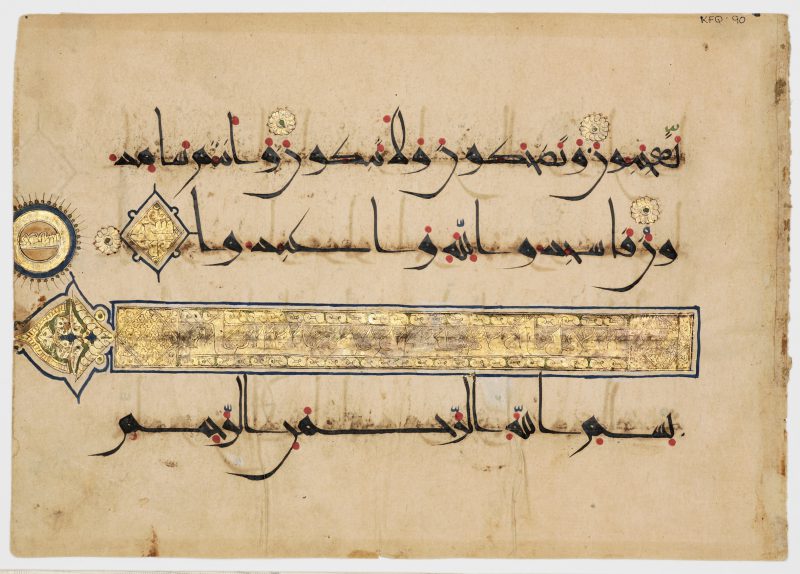 KFQ 90
تعجبون وتضحكون ولا تبكون وانتم سامد
ون فاسجدوا لله واعبدوا
بسم الله الرحمن الرحيم